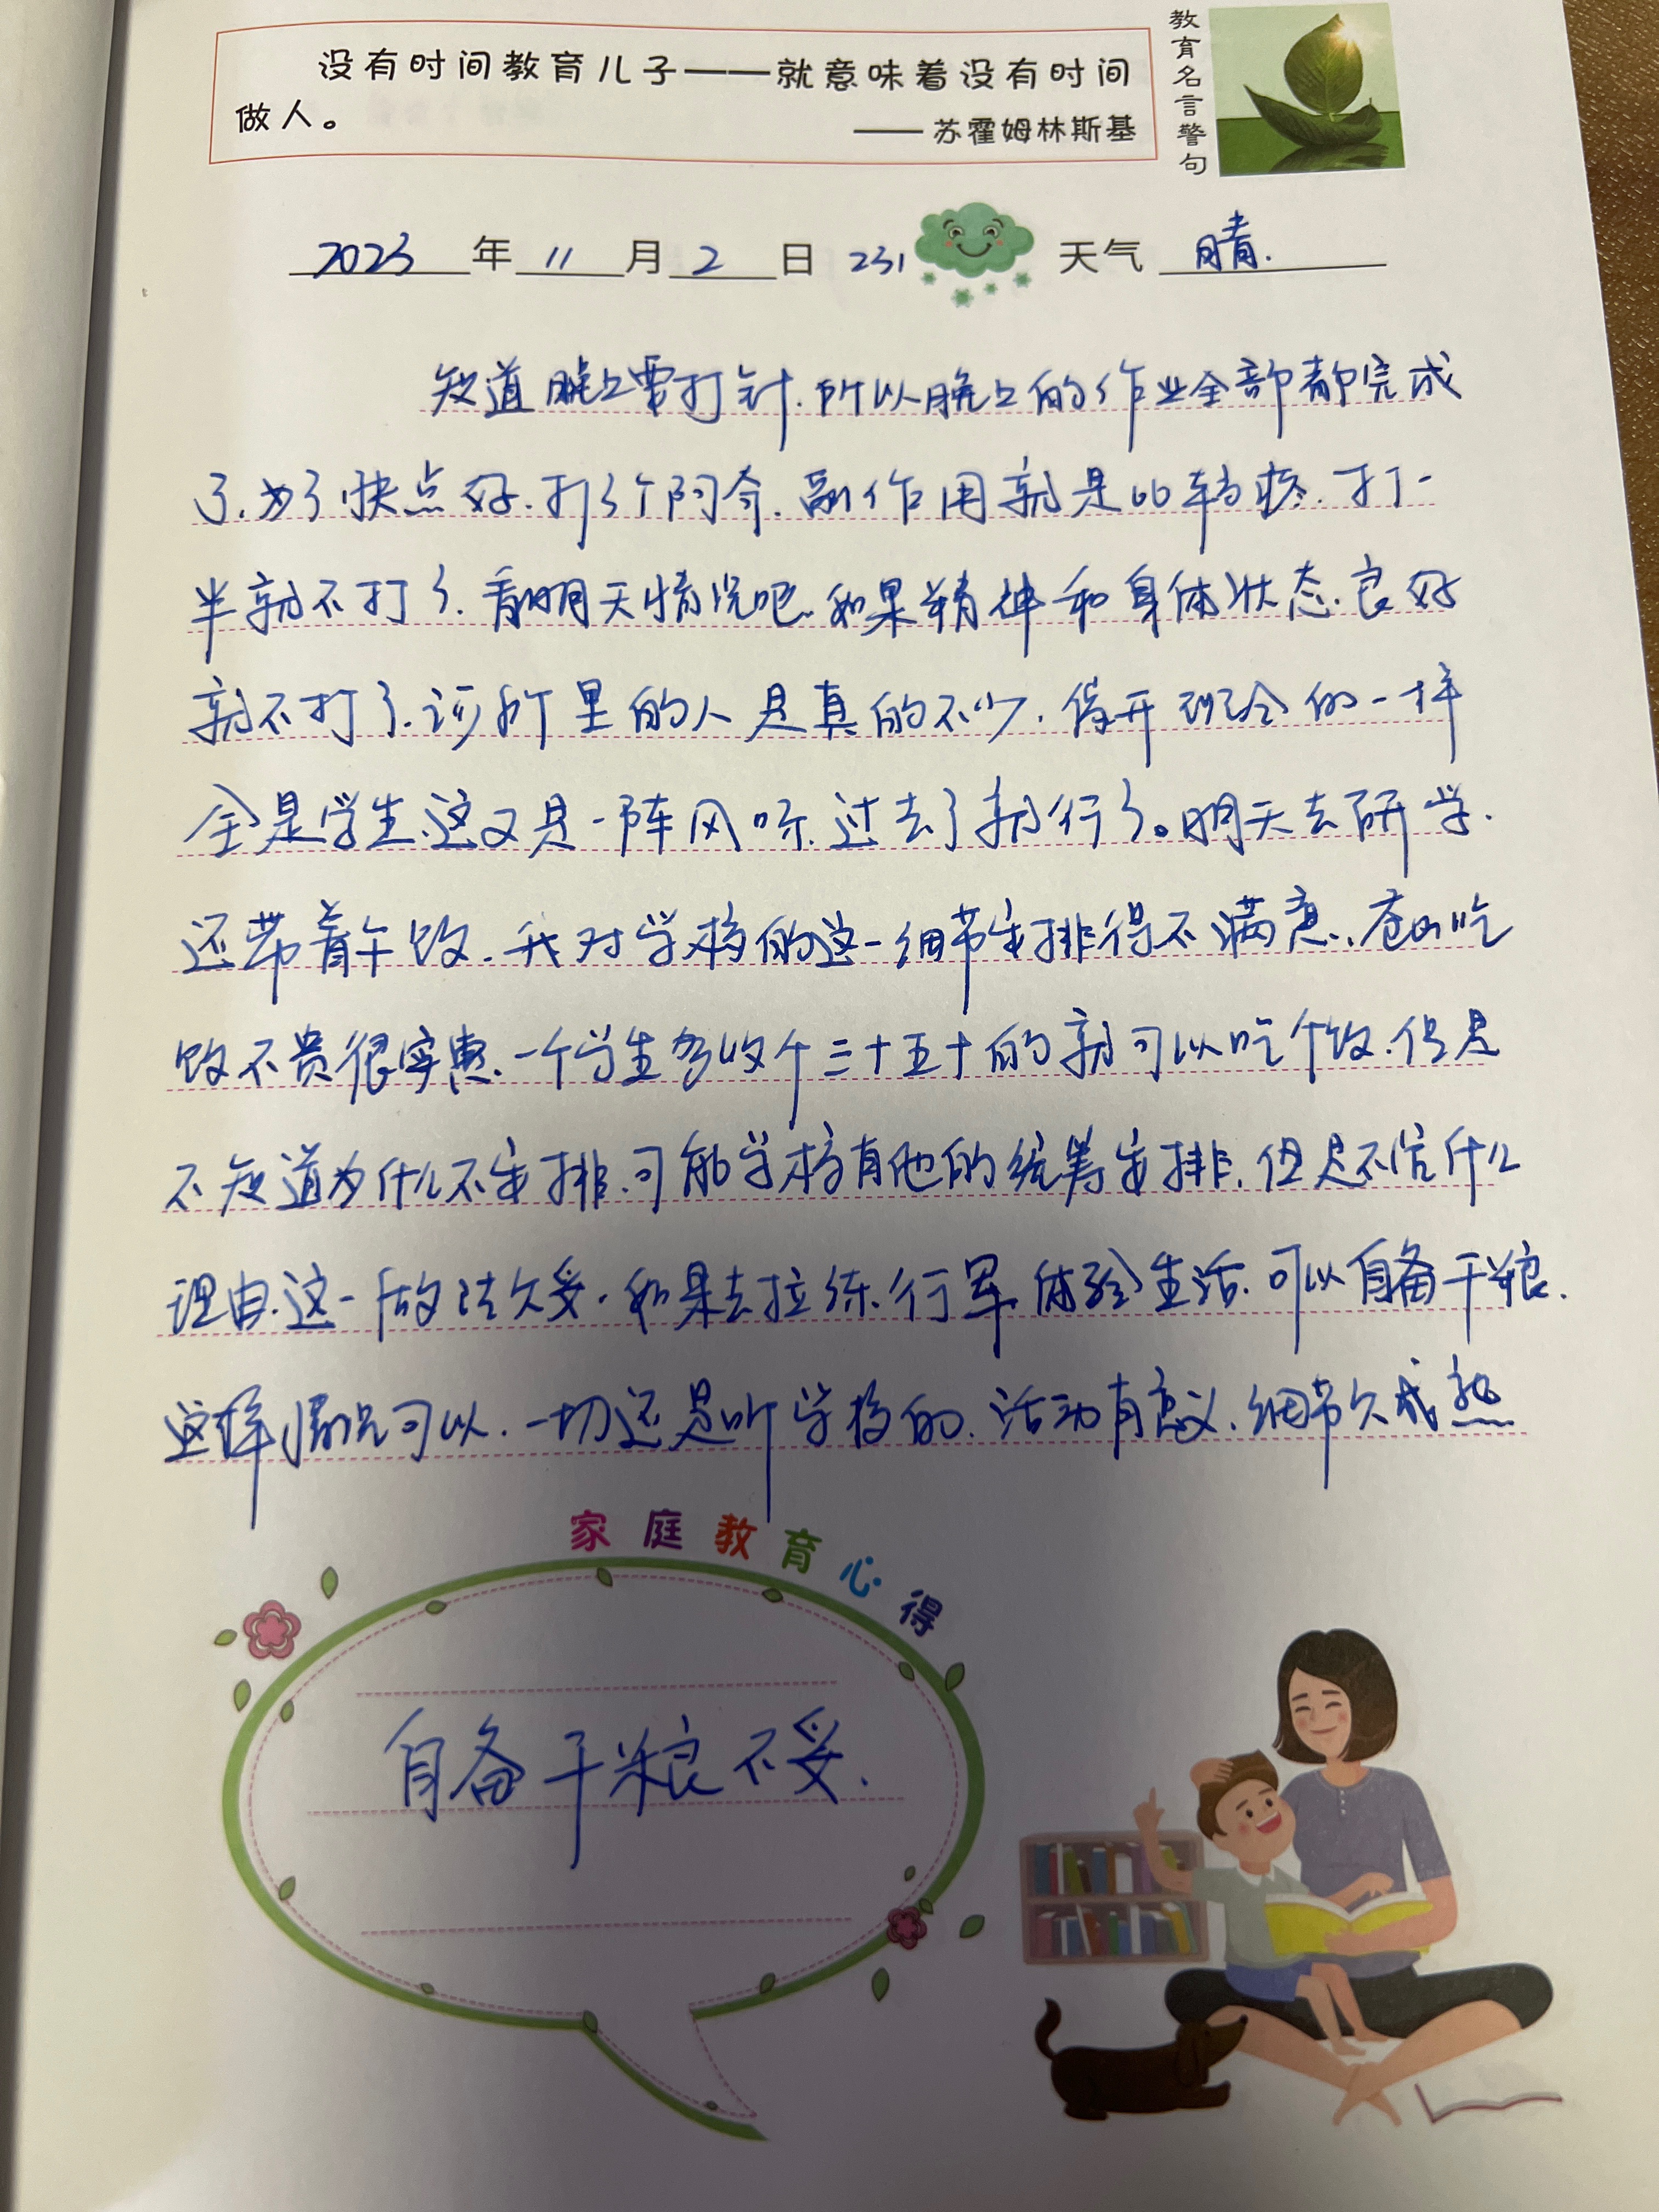 没有时间教育儿子——就意味着没有时间
做人。
——苏霍姆林斯基
教育名言警句
2023年11月2日 231 天气 晴.
知道晚上要打针.所以晚上的作业全部都完成
了.为了快点好.打了个阿奇.副作用就是比较疼.打一
半就不打了.看明天情况吧.如果精神和身体状态良好
就不打了.诊所里的人是真的不少.像开班会的一样
全是学生.这又是一阵风呀.过去了就行了。明天去研学.
还带着午饭.我对学校的这一细节安排得不满意.吃
饭不贵很实惠.一个学生多收个三十五十的就可以吃个饭.但是
不知道为什么不安排.可能学校有他的统筹安排.但是不管什么
理由.这一做法欠妥.如果去拉练.行军.体验生活.可以自备干粮.
这样情况可以.一切还是听学校的.活动有意义.细节欠成熟
家庭教育心得
自备干粮不妥.